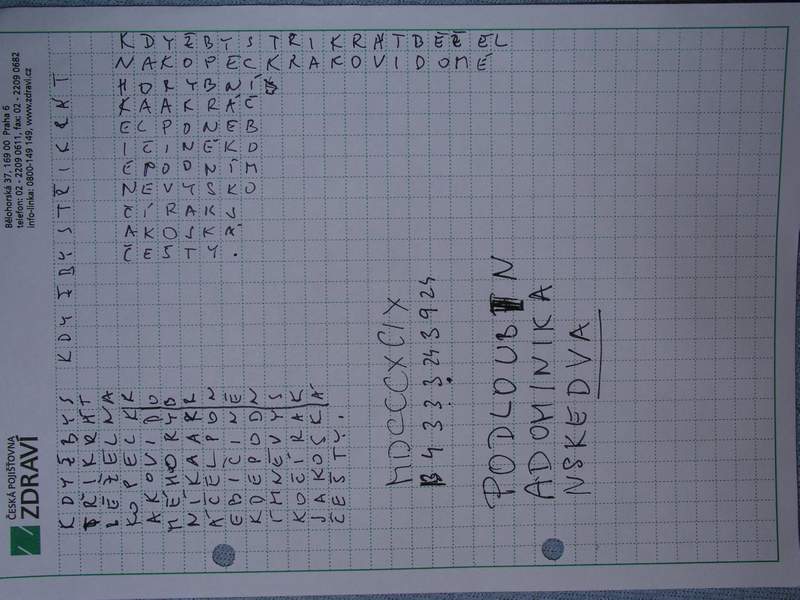 ČESKÁ POJIŠŤOVNA
ZDRAVÍ
Bělohorská 37, 169 00 Praha 6
telefon: 02 - 2209 0611, fax: 02 - 2209 0682
info-linka: 0800-149 149, www.zdravi.cz
KDYŽBYSTŘIKRÁT
KDYŽBYSTŘIKRÁTBĚŽEL
NAKOPECKRAKOVIDOMÉ
HORYBNÍ
KAAKRÁČ
ELPONEB
IČINĚKD
EPODNÍM
NEVYSKO
ČÍRAKS
AKOSKÁ
ČESTY.
KDYŽBYS
TŘIKRÁT
BĚŽELNA
KOPECKR
AKOVIDO
MÉHORYB
NÍKAAKR
ÁČELPON
EBIČINĚ
KDEPODN
ÍMNEVYS
KOČÍRAK
JAKOSKÁ
ČESTY.
MDCCCXCIX
4 3 3 3 24 3 9 24
PODLOUBN
ADOMINIKA
NSKEDVA